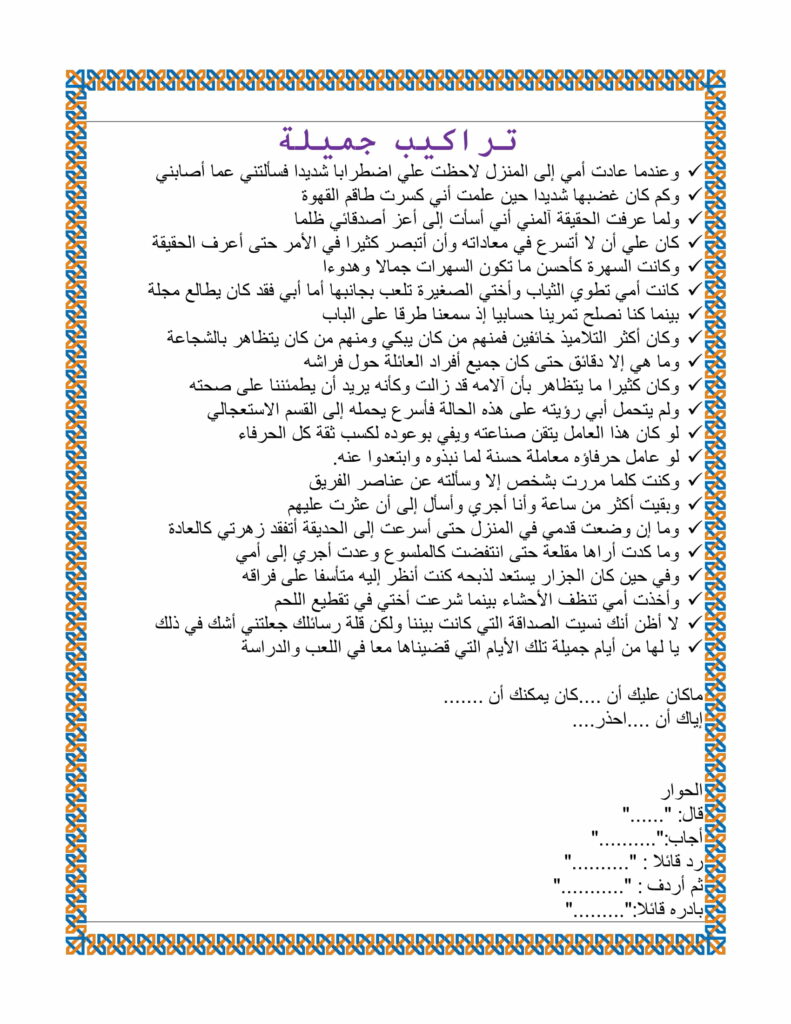 تراكيب جميلة
✓ وعندما عادت أمي إلى المنزل لاحظت علي اضطرابا شديدا فسألتني عما أصابني
✓ وكم كان غضبها شديدا حين علمت أني كسرت طاقم القهوة
✓ ولما عرفت الحقيقة آلمني أني أسأت إلى أعز أصدقائي ظلما
✓ كان علي أن لا أتسرع في معاداته وأن أتبصر كثيرا في الأمر حتى أعرف الحقيقة
✓ وكانت السهرة كأحسن ما تكون السهرات جمالا وهدوءا
✓ كانت أمي تطوي الثياب وأختي الصغيرة تلعب بجانبها أما أبي فقد كان يطالع مجلة
✓ بينما كنا نصلح تمرينا حسابيا إذ سمعنا طرقا على الباب
✓ وكان أكثر التلاميذ خائفين فمنهم من كان يبكي ومنهم من كان يتظاهر بالشجاعة
✓ وما هي إلا دقائق حتى كان جميع أفراد العائلة حول فراشه
✓ وكان كثيرا ما يتظاهر بأن آلامه قد زالت وكأنه يريد أن يطمئننا على صحته
✓ ولم يتحمل أبي رؤيته على هذه الحالة فأسرع يحمله إلى القسم الاستعجالي
✓ لو كان هذا العامل يتقن صناعته ويفي بوعوده لكسب ثقة كل الحرفاء
✓ لو عامل حرفاؤه معاملة حسنة لما نبذوه وابتعدوا عنه.
✓ وكنت كلما مررت بشخص إلا وسألته عن عناصر الفريق
✓ وبقيت أكثر من ساعة وأنا أجري وأسأل إلى أن عثرت عليهم
✓ وما إن وضعت قدمي في المنزل حتى أسرعت إلى الحديقة أتفقد زهرتي كالعادة
✓ وما كدت أراها مقلعة حتى انتفضت كالملسوع وعدت أجري إلى أمي
✓ وفي حين كان الجزار يستعد لذبحه كنت أنظر إليه متأسفا على فراقه
✓ وأخذت أمي تنظف الأحشاء بينما شرعت أختي في تقطيع اللحم
✓ لا أظن أنك نسيت الصداقة التي كانت بيننا ولكن قلة رسائلك جعلتني أشك في ذلك
✓ يا لها من أيام جميلة تلك الأيام التي قضيناها معا في اللعب والدراسة
ماكان عليك أن ....كان يمكنك أن .......
إياك أن ....احذر....
الحوار
قال: "......"
أجاب:".........."
رد قائلا : ".........."
ثم أردف : "..........."
بادره قائلا:"........."